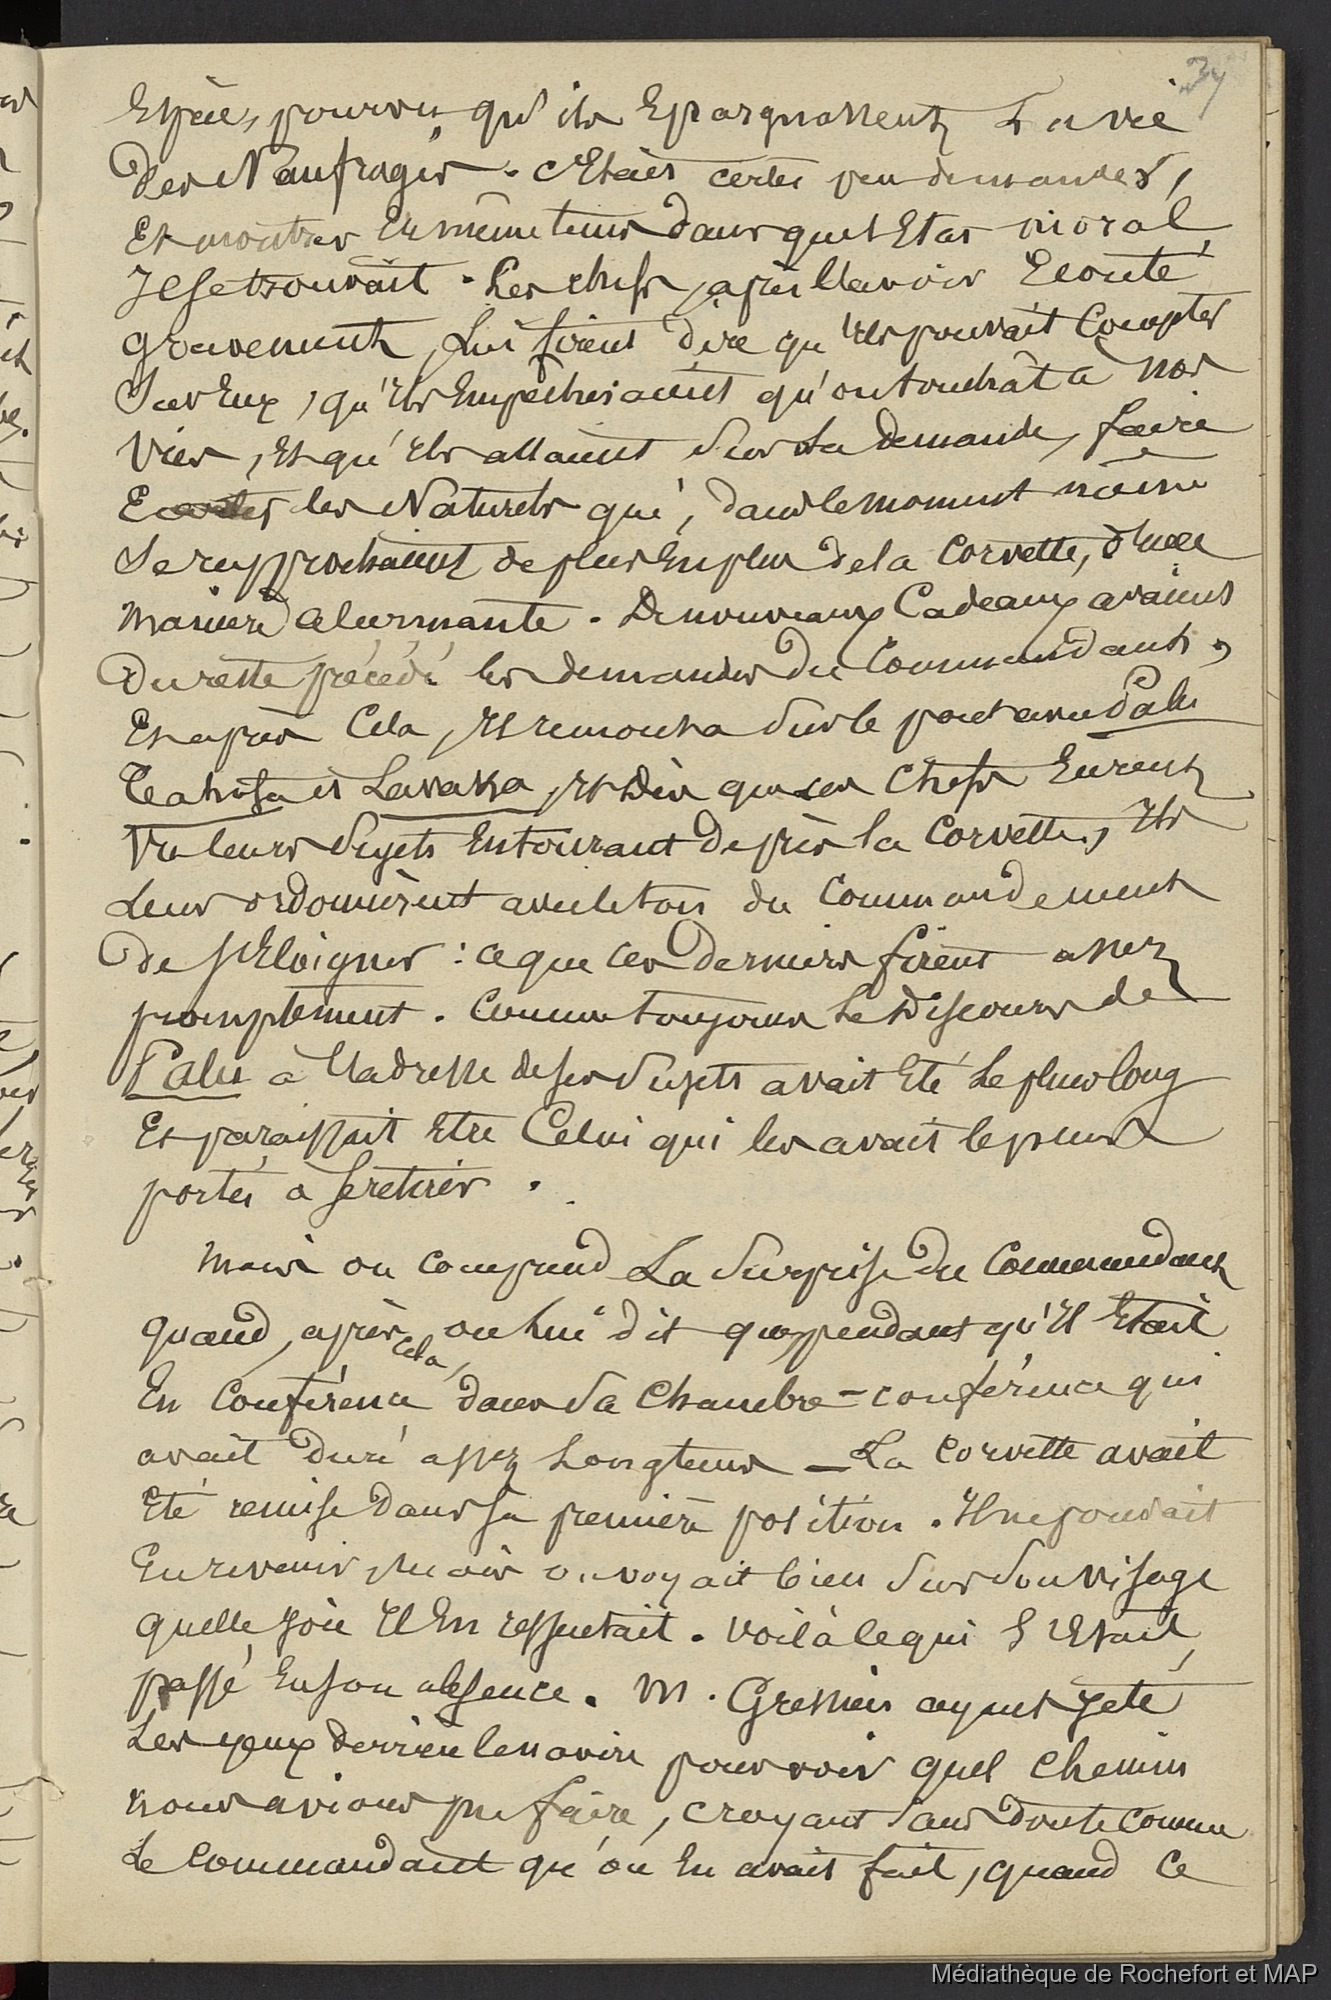 37
Espèce, pourvu qu'ils Epargnassent La vie
des Naufragés. C'Etait certes peu demander,
Et montrer En même tems dans quel Etat moral
Il se trouvait. Les chefs, après l'avoir Ecouté
gravement, Lui firent dire qu'Il pouvait Compter
Sur Eux, qu'Ils Empêcheraient qu'on touchât à nos
Vies, Et qu'Ils allaient sur sa demande, faire
Ecarter les Naturels qui, dans le moment même
Se rapprochaient de plus En plus de la Corvette, d'une
manière alarmante. De nouveaux Cadeaux avaient
Du reste précédé les demandes du Commandant,
Et après Cela, Il remonta sur le pont avec Palu
Tahofa et Lavaka, Et Dès que ces Chefs Eurent
Vu leurs Sujets Entourant de près la Corvette, Ils
Leur ordonnèrent avec le ton du Commandement
de s'Eloigner : ce que ces Derniers firent assez
promptement. Comme toujours Le Discours de
Palu à l'adresse de ses Sujets avait Eté Le plus long
Et paraissait Etre Celui qui les avait le plus
portés à se retirer.
Mais on comprend La Surprise du Commandant
quand, après cela, on lui dit que, pendant qu'Il Etait
En Conférence dans Sa Chambre - conférence qui
avait duré assez Longtems - La Corvette avait
Eté remise Dans sa première position. Il ne pouvait
En revenir, Mais on voyait bien sur son visage
quelle joie Il En ressentait. Voilà ce qui s'Etait
passé En son absence. M. Gressien ayant jeté
Les yeux derrière le navire pour voir quel chemin
nous avions pu faire, croyant sans doute comme
Le Commandant qu'on En avait fait, quand Ce
Médiathèque de Rochefort et MAP